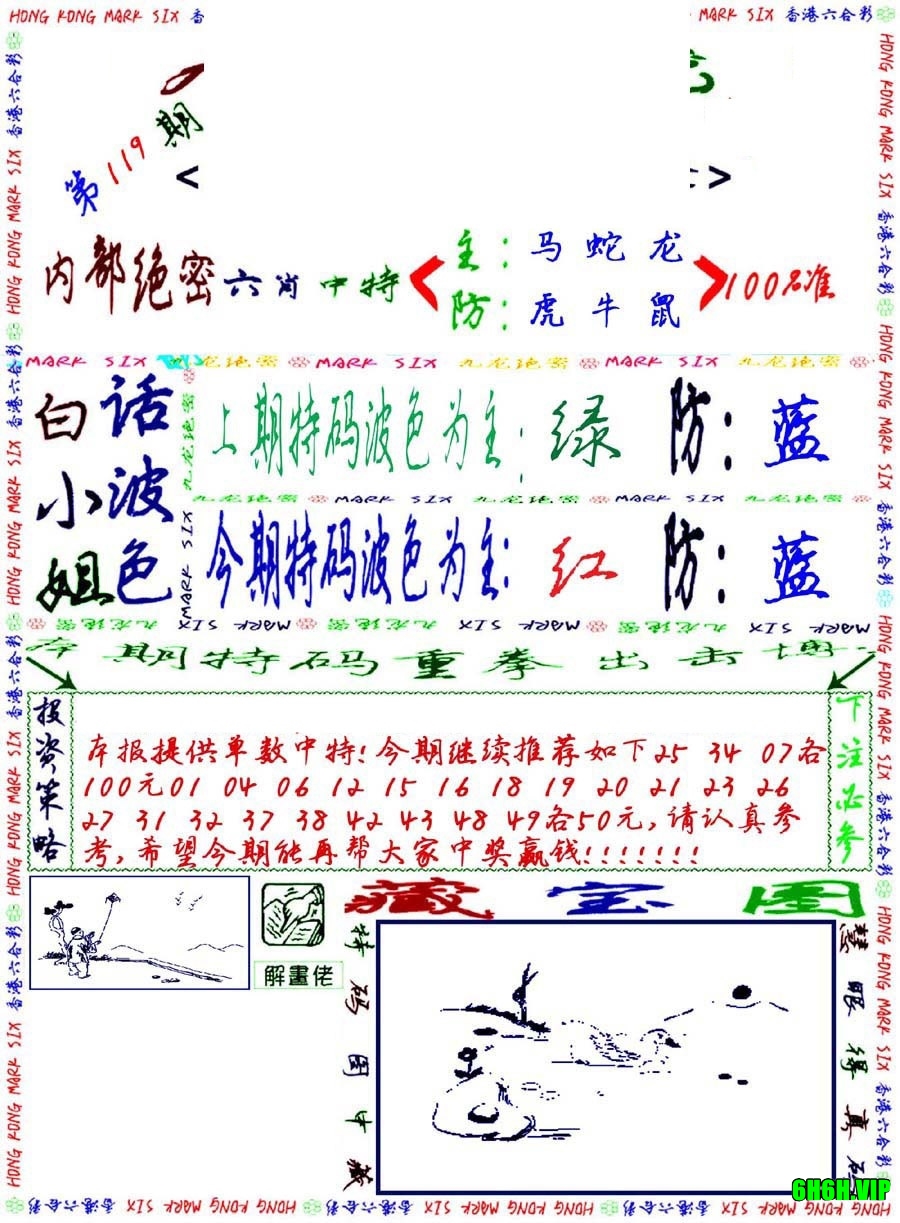 HONG KONG MARK SIX 香
MARK SIX 香港六合彩
第119期
< >
内部绝密六肖中特
主：马蛇龙
防：虎牛鼠
100%准
MARK SIX 九龙绝密 MARK SIX 九龙绝密 MARK SIX 九龙绝密
白话
小波
姐色
上期特码波色为主：绿 防：蓝
九龙绝密 MARK SIX 九龙绝密 MARK SIX 九龙绝密
今期特码波色为主：红 防：蓝
九龙绝密 MARK SIX 九龙绝密 MARK SIX 九龙绝密 MARK SIX
期特码重拳出击
投资策略
本报提供单数中特！今期继续推荐如下25 34 07各
100元01 04 06 12 15 16 18 19 20 21 23 26
27 31 32 37 38 42 43 48 49各50元，请认真参
考，希望今期能再帮大家中奖赢钱！！！！！！！
下注必参
解畫佬
藏宝图
特码图中藏
慧眼得真码
HONG KONG MARK SIX 香港六合彩
6H6H.VIP